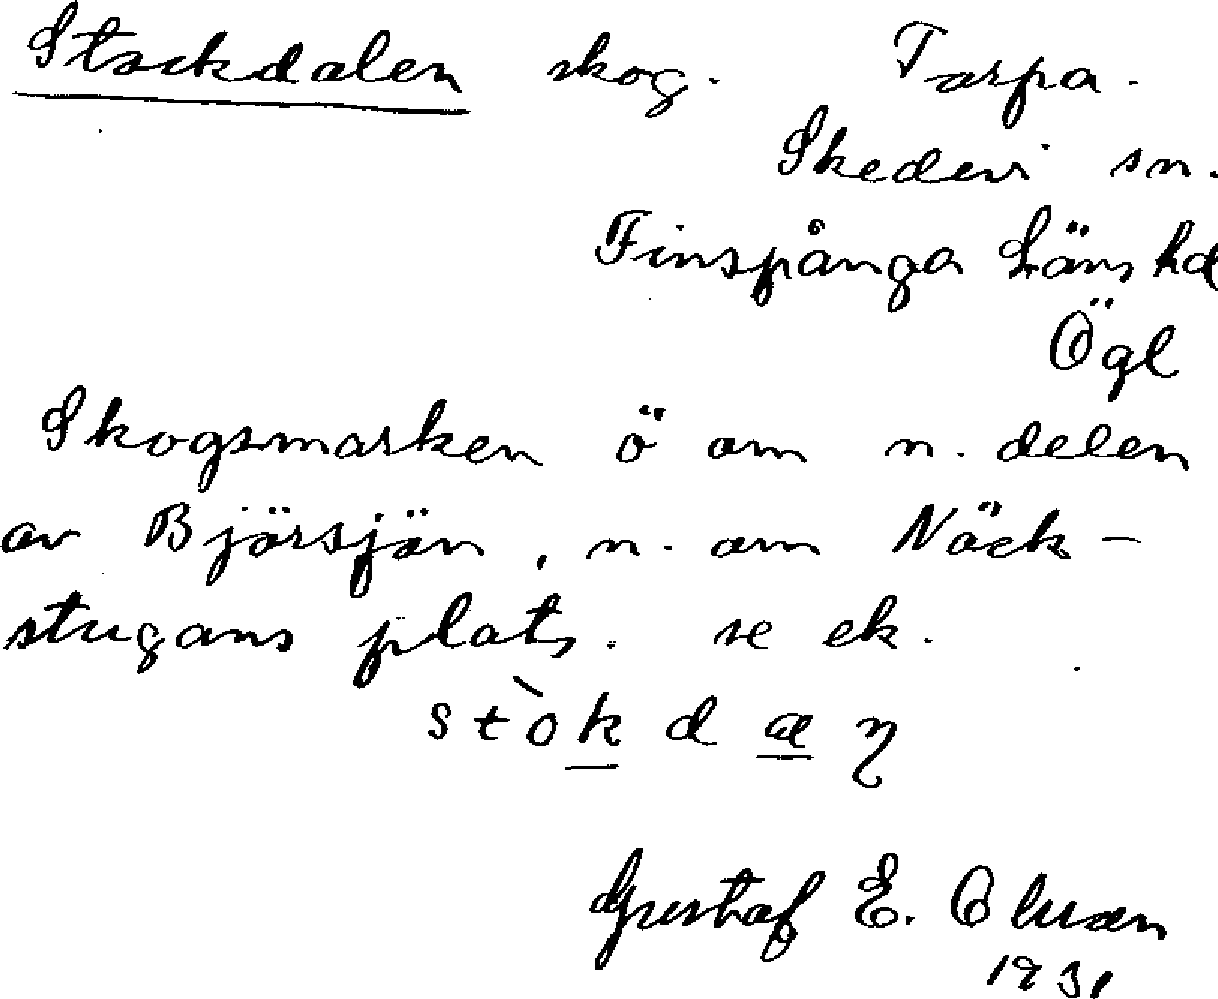 Stockdalen skog. Torpa.
Skedevi sn.
Finspånga Läns hd
Ögl
Skogsmarken ö om n. delen
av Björsjön, n. om Näck-
stugans plats. se ek.
stòkdæn
Gustaf E. Olsson
1931